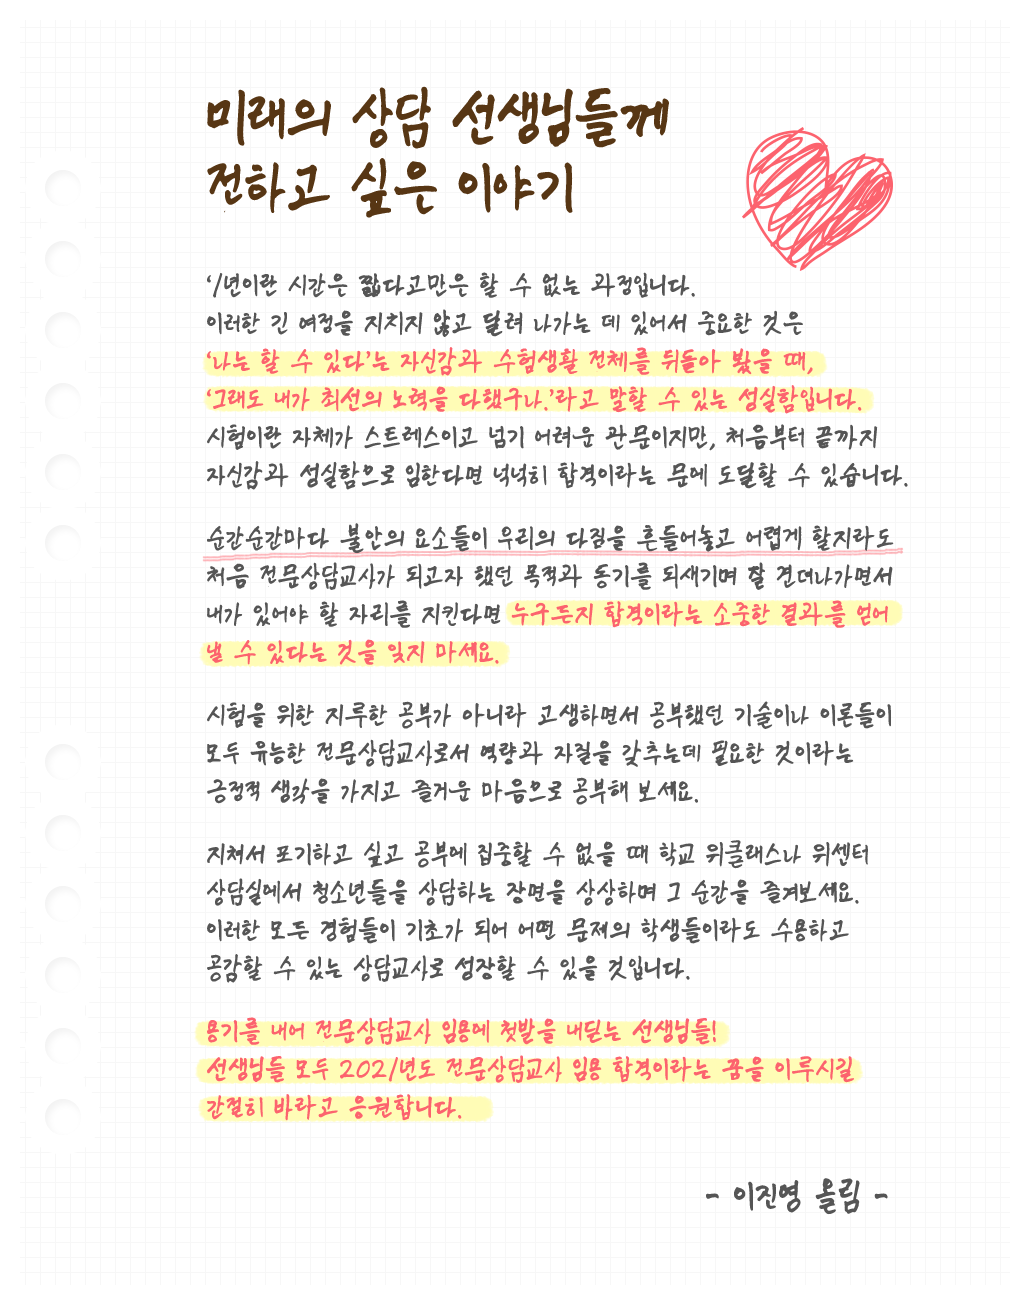 미래의 상담 선생님들께
전하고 싶은 이야기
‘1년이란 시간은 짧다고만은 할 수 없는 과정입니다.
이러한 긴 여정을 지치지 않고 달려 나가는 데 있어서 중요한 것은
‘나는 할 수 있다’는 자신감과 수험생활 전체를 뒤돌아 봤을 때,
‘그래도 내가 최선의 노력을 다했구나.’라고 말할 수 있는 성실함입니다.
시험이란 자체가 스트레스이고 넘기 어려운 관문이지만, 처음부터 끝까지
자신감과 성실함으로 임한다면 넉넉히 합격이라는 문에 도달할 수 있습니다.
순간순간마다 불안의 요소들이 우리의 다짐을 흔들어놓고 어렵게 할지라도
처음 전문상담교사가 되고자 했던 목적과 동기를 되새기며 잘 견뎌나가면서
내가 있어야 할 자리를 지킨다면 누구든지 합격이라는 소중한 결과를 얻어
낼 수 있다는 것을 잊지 마세요.
시험을 위한 지루한 공부가 아니라 고생하면서 공부했던 기술이나 이론들이
모두 유능한 전문상담교사로서 역량과 자질을 갖추는데 필요한 것이라는
긍정적 생각을 가지고 즐거운 마음으로 공부해 보세요.
지쳐서 포기하고 싶고 공부에 집중할 수 없을 때 학교 위클래스나 위센터
상담실에서 청소년들을 상담하는 장면을 상상하며 그 순간을 즐겨보세요.
이러한 모든 경험들이 기초가 되어 어떤 문제의 학생들이라도 수용하고
공감할 수 있는 상담교사로 성장할 수 있을 것입니다.
용기를 내어 전문상담교사 임용에 첫발을 내딛는 선생님들!
선생님들 모두 2021년도 전문상담교사 임용 합격이라는 꿈을 이루시길
간절히 바라고 응원합니다.
- 이진영 올림 -